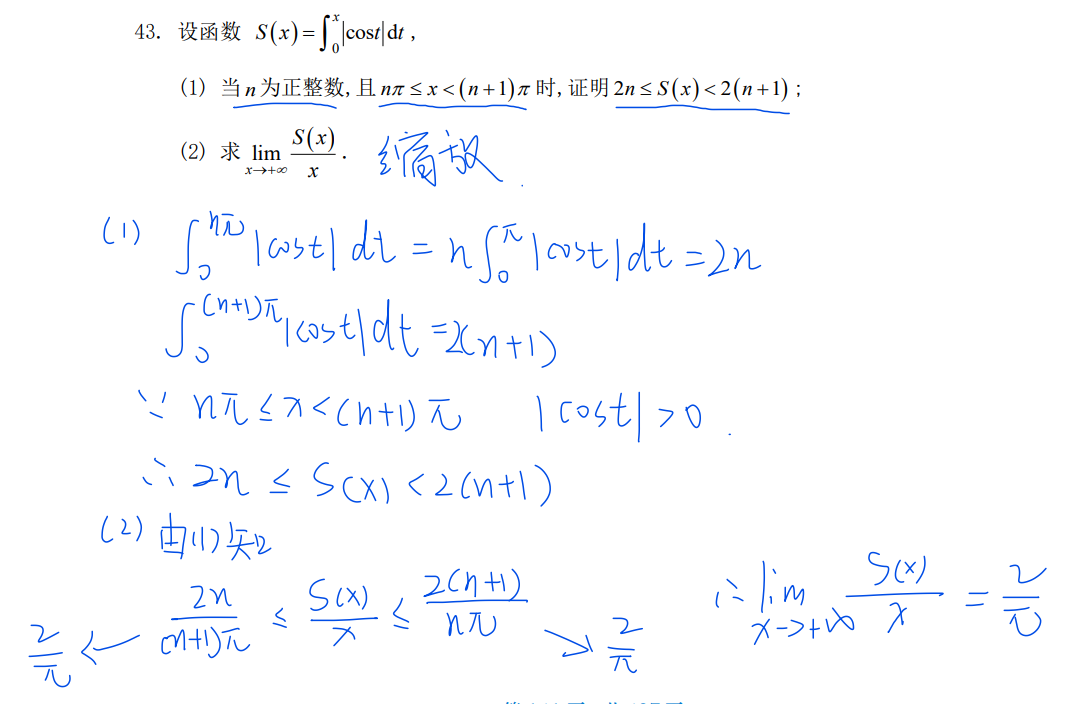 43. 设函数 S(x)=∫₀ˣ|cost|dt，
(1) 当n为正整数,且nπ≤x<(n+1)π时,证明2n≤S(x)<2(n+1)；
(2) 求 lim_{x→+∞} S(x)/x .
缩放
(1) ∫₀^{nπ} |cost| dt = n∫₀^{π} |cost| dt = 2n
∫₀^{(n+1)π} |cost| dt = 2(n+1)
∵ nπ ≤ x < (n+1)π |cost| > 0 .
∴ 2n ≤ S(x) < 2(n+1)
(2) 由(1)知
2/π ← 2n/(n+1)π ≤ S(x)/x ≤ 2(n+1)/nπ → 2/π ∴ lim_{x→+∞} S(x)/x = 2/π